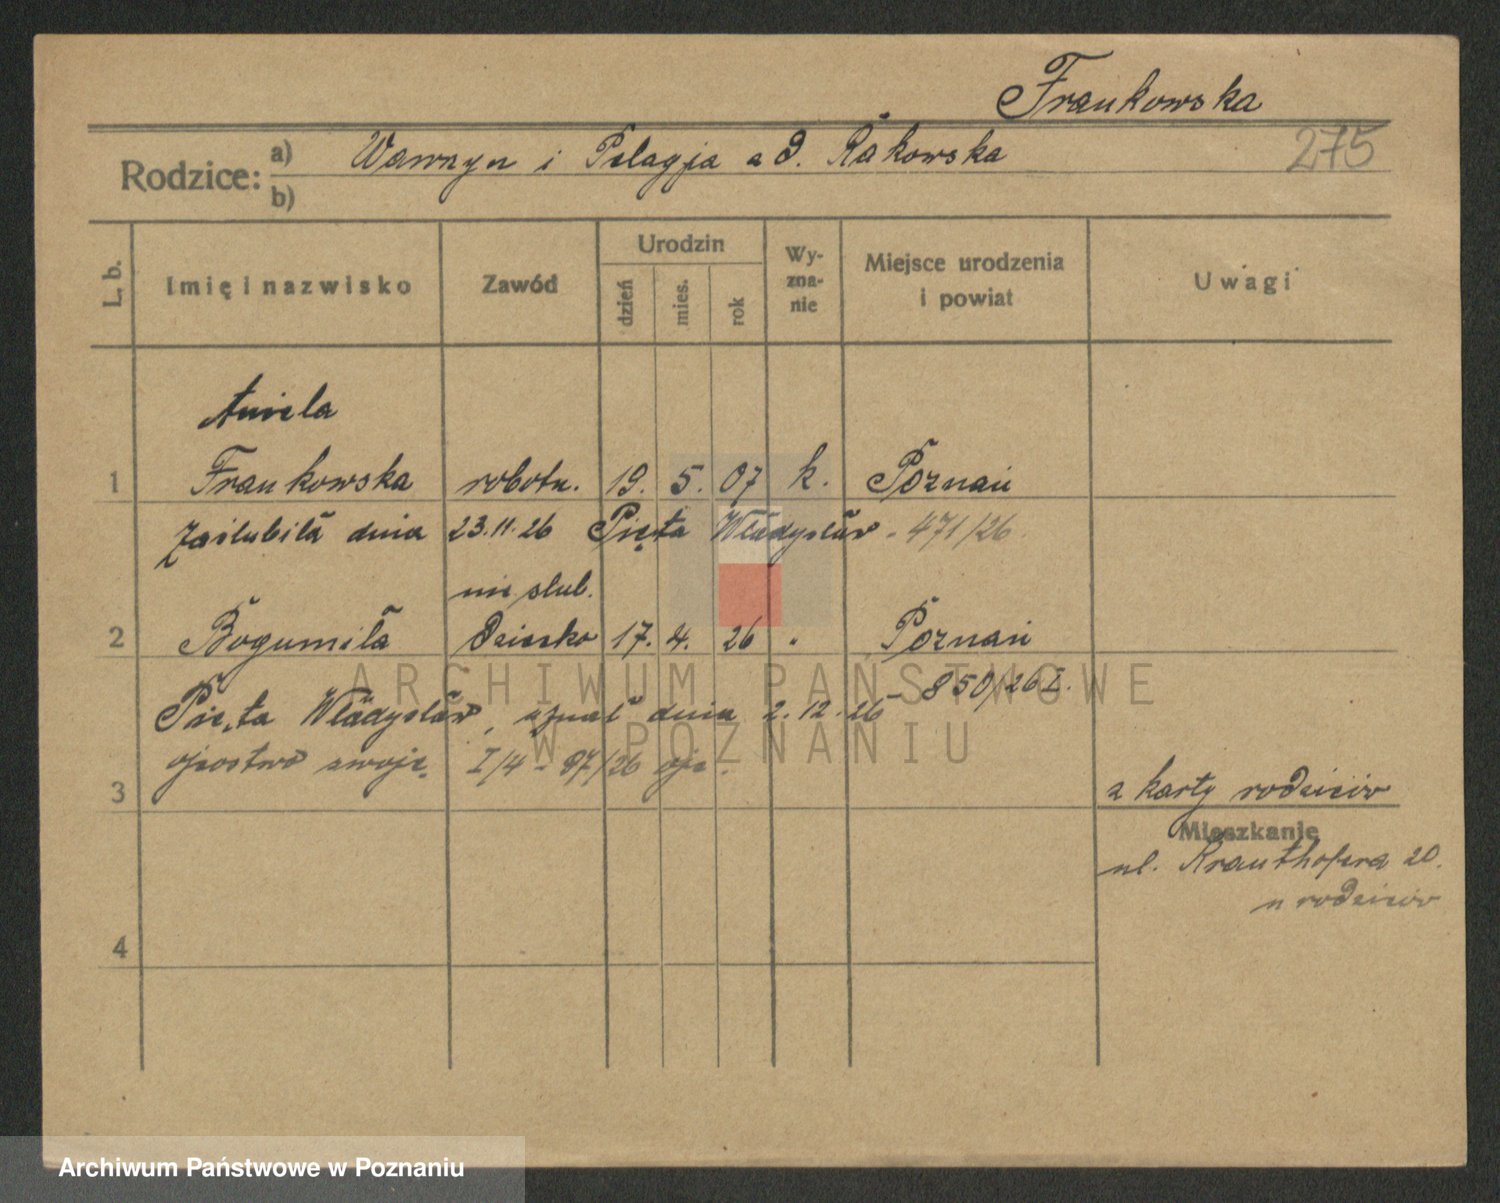 Frankowska
275
Rodzice: a) Wawrzyn i Pelagja z d. Rakowska
b)
L. b. Imię i nazwisko Zawód Urodzin dzień mies. rok Wyznanie Miejsce urodzenia i powiat Uwagi
Aniela
1 Frankowska robotn. 19. 5. 07 k. Poznań
Zaślubiła dnia 23.11.26 Pięta Władysław - 471/26.
nieślub.
2 Bogumiła dziecko 17. 4. 26 " Poznań
850/26 I.
Pięta Władysław, uznał dnia 2.12.26
ojcostwo swoje. I/4 - 97/26 ojc.
3 z karty rodziców
Mieszkanie
ul. Krauthofera 20.
u rodziców
4
ARCHIWUM PAŃSTWOWE
W POZNANIU
Archiwum Państwowe w Poznaniu